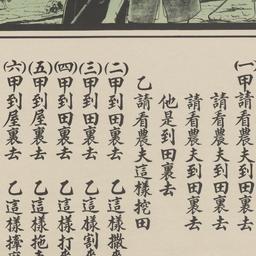 (一)甲請看農夫到田裏去
請看農夫到田裏去
請看農夫到田裏去
他是到田裏去
乙請看農夫這樣挖田
(二)甲到田裏去 乙這樣撒
(三)甲到田裏去 乙這樣割
(四)甲到田裏去 乙這樣打
(五)甲到屋裏去 乙這樣拖
(六)甲到屋裏去 乙這樣